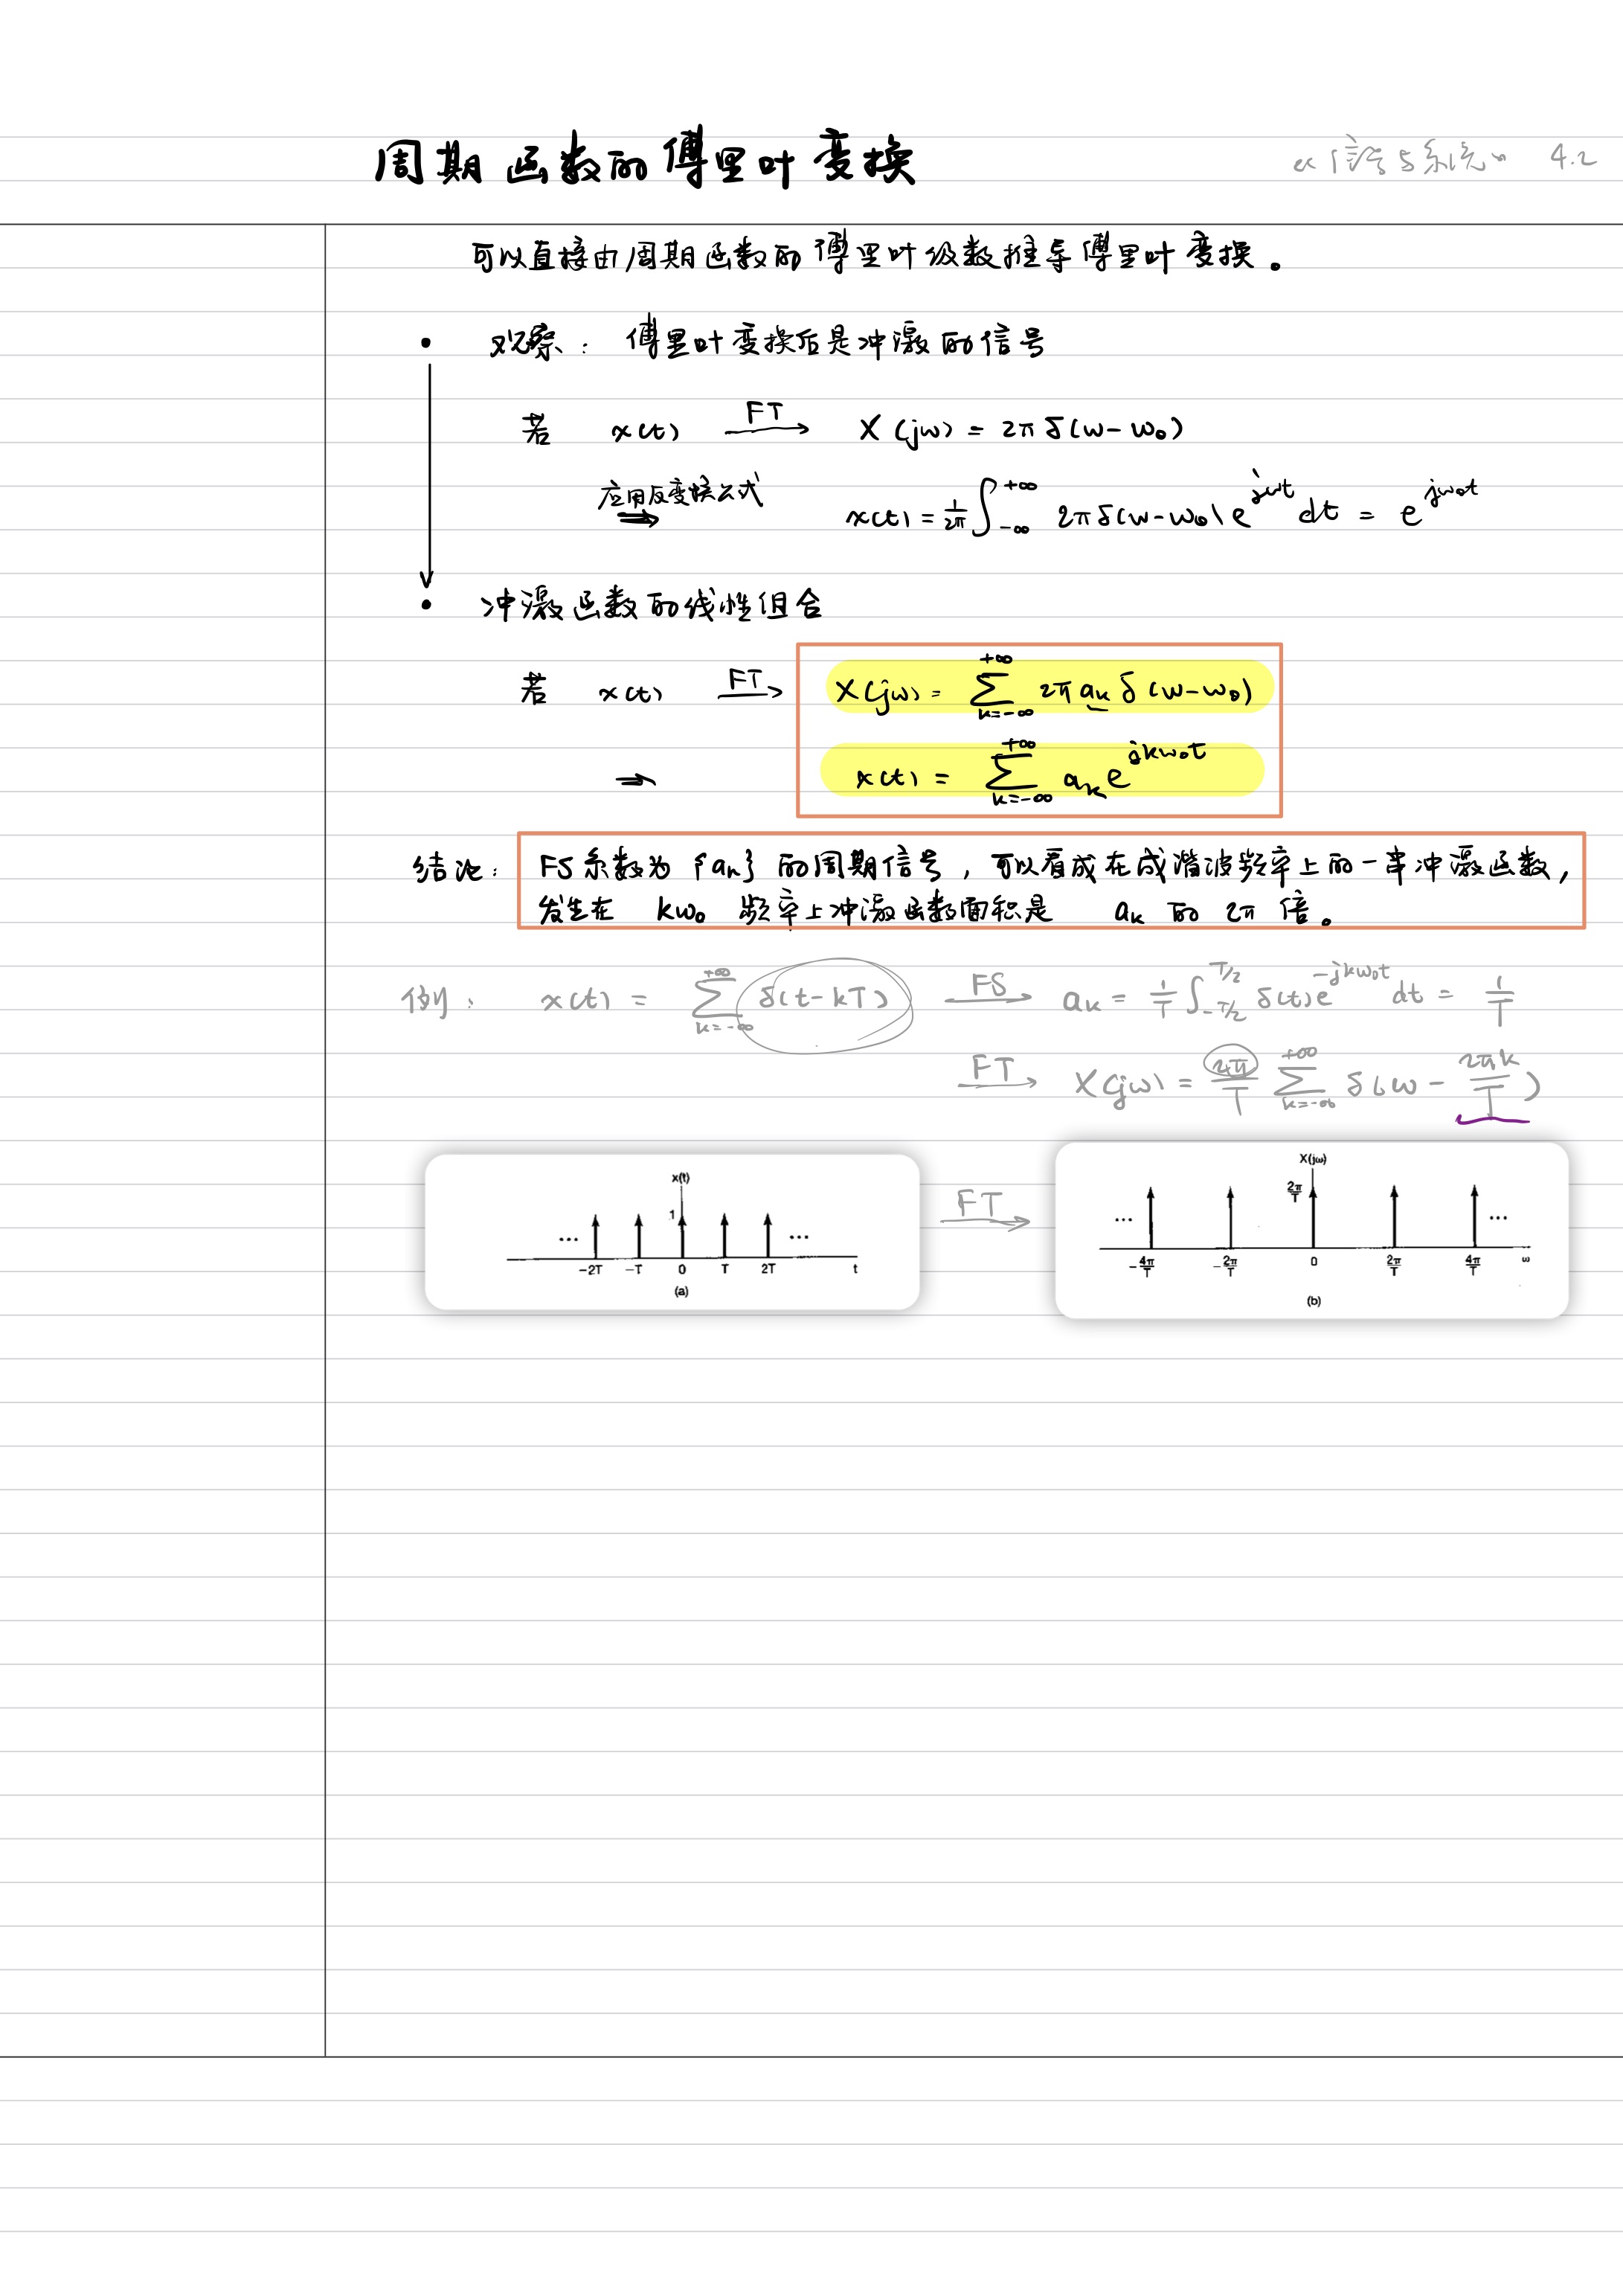 周期函数的傅里叶变换
《信号与系统》 4.2
可以直接由周期函数的傅里叶级数推导傅里叶变换。
• 观察：傅里叶变换后是冲激的信号
若 x(t) FT→ X(jω) = 2π δ(ω-ω₀)
应用反变换公式 ⇒ x(t) = 1/2π ∫_{-∞}^{+∞} 2π δ(ω-ω₀) e^{jωt} dt = e^{jω₀t}
• 冲激函数的线性组合
若 x(t) FT→ X(jω) = Σ_{k=-∞}^{+∞} 2π aₖ δ(ω-ω₀)
⇒ x(t) = Σ_{k=-∞}^{+∞} aₖ e^{jkω₀t}
结论：FS系数为 {aₖ} 的周期信号，可以看成在成谐波频率上的一串冲激函数，
发生在 kω₀ 频率上冲激函数面积是 aₖ 的 2π 倍。
例： x(t) = Σ_{k=-∞}^{+∞} δ(t-kT) FS→ aₖ = 1/T ∫_{-T/2}^{T/2} δ(t) e^{-jkω₀t} dt = 1/T
FT→ X(jω) = 2π/T Σ_{k=-∞}^{+∞} δ(ω - 2πk/T)
x(t)
1
... ...
-2T -T 0 T 2T t
(a)
FT→
X(jω)
2π/T
... ...
-4π/T -2π/T 0 2π/T 4π/T ω
(b)